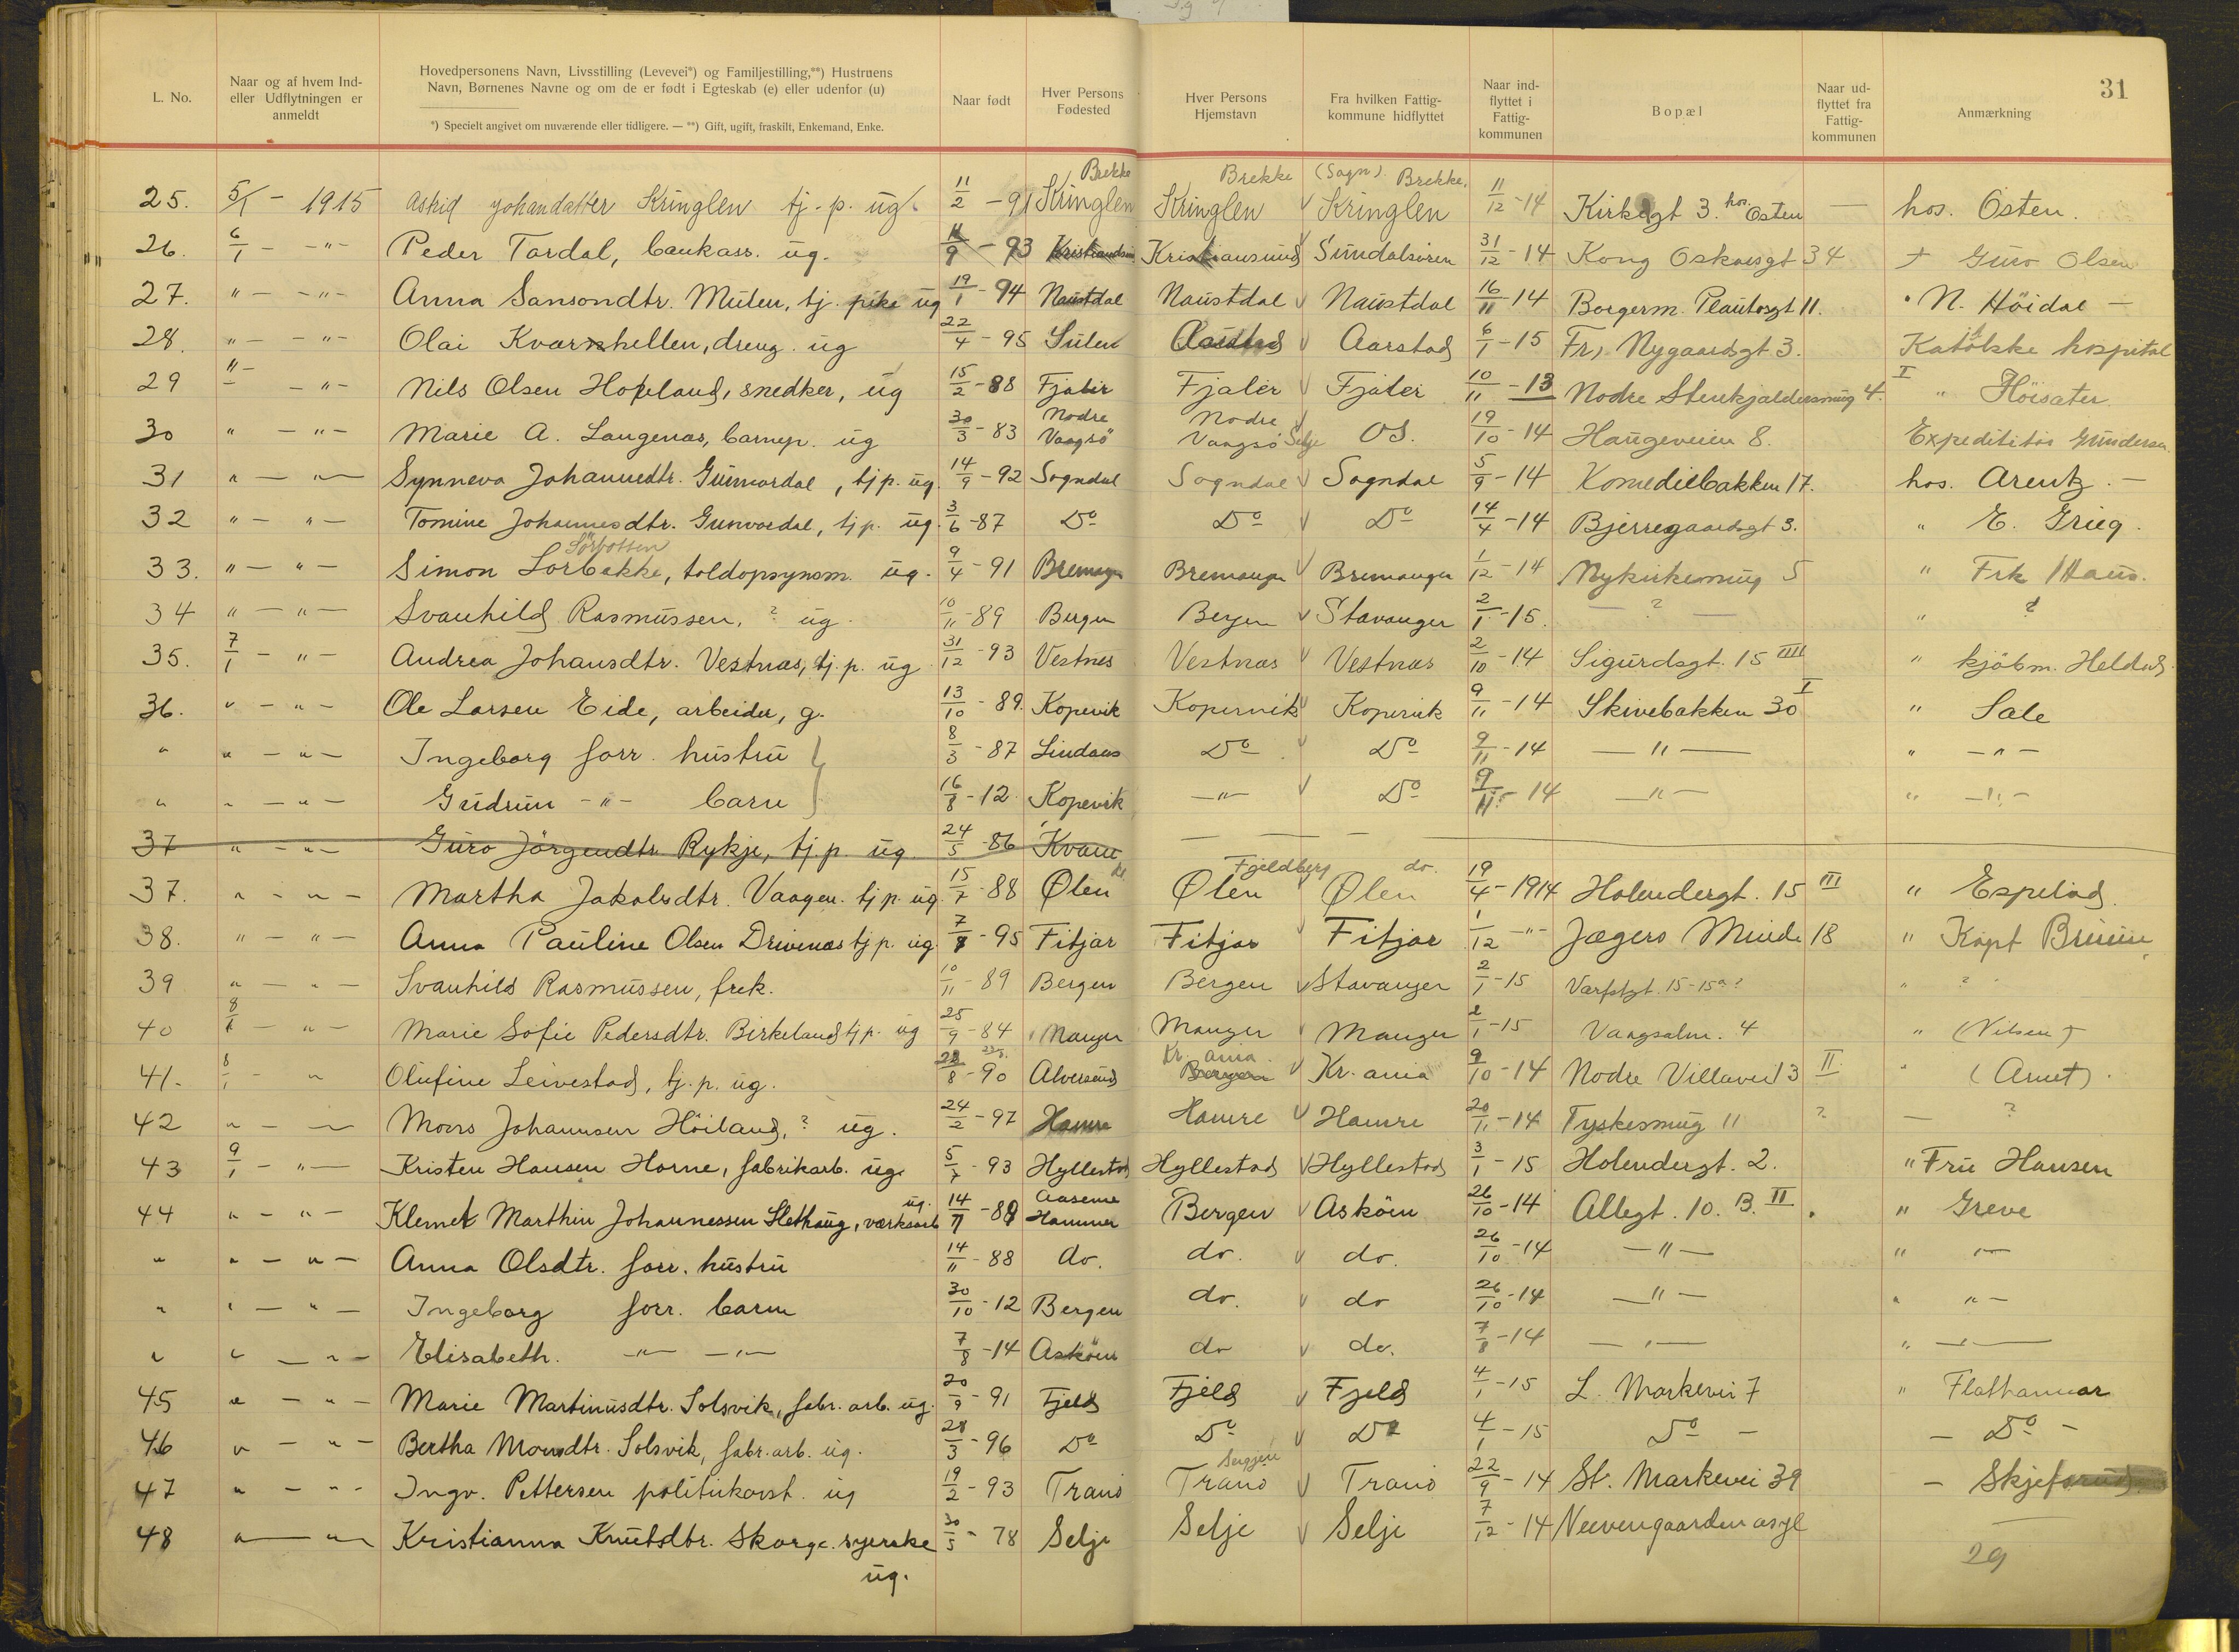 31
L. No.
Naar og af hvem Ind-
eller Udflytningen er
anmeldt
Hovedpersonens Navn, Livsstilling (Levevei*) og Familjestilling,**) Hustruens
Navn, Børnenes Navne og om de er født i Egteskab (e) eller udenfor (u)
*) Specielt angivet om nuværende eller tidligere. — **) Gift, ugift, fraskilt, Enkemand, Enke.
Naar født
Hver Persons
Fødested
Hver Persons
Hjemstavn
Fra hvilken Fattig-
kommune hidflyttet
Naar ind-
flyttet i
Fattig-
kommunen
Bopæl
Naar ud-
flyttet fra
Fattig-
kommunen
Anmærkning
Brekke Brekke (Sogn). Brekke.
25. 5/1 - 1915 Astrid Johandatter Kringlen tj. p. ug. 11/2 - 91 Kringlen Kringlen Kringlen 11/12 - 14 Kirkegt 3. hos Osten — hos. Osten.
26. 6/1 - -"- Peder Tardal, bankass. ug. 11/9 - 93 Kristiansund Kristiansund Sundalsören 31/12 - 14 Kong Oskarsgt 34 Guro Olsen
27. " - -"- Anna Sansondtr. Mulen, tj. pike ug 19/1 - 94 Naustdal Naustdal Naustdal 16/11 - 14 Borgerm. Plautosgt 11. " N. Höidal -
28. " - -"- Olai Kvarnhellen, dreng. ug 22/4 - 95 Sulen Aarstad Aarstad 6/1 - 15 Fr. Nygaardsgt 3. Katolske hospital
29 " - -"- Nils Olsen Hopland, snedker, ug 15/2 - 88 Fjaler Fjaler Fjaler 10/11 - 13 Nodre Stenkjaldersmug 4. I " Höisæter.
Nodre Nodre
30 " - "- Marie A. Langenæs, barnep. ug 30/3 - 83 Vaagsö Vaagsö Selje Os. 19/10 - 14 Haugeveien 8. Expeditör Gundersen
31 " - "- Synneva Johannedtr. Gunvordal, tj p. ug. 14/9 - 92 Sogndal Sogndal Sogndal 5/9 - 14 Komediebakken 17. hos. Arentz. -
32 " - " - Tomine Johannesdtr. Gunvordal, tj p. ug. 3/6 - 87 Do Do Do 14/4 - 14 Bjerregaardsgt 3. " E. Grieg.
Sörbotten
33. " - " - Simon Sorbakke, toldopsynsm. ug. 9/4 - 91 Bremanger Bremanger Bremanger 1/12 - 14 Nykirkesmug 5 " Frk Haus.
34 " - " - Svanhild Rasmussen, ? ug. 10/11 - 89 Bergen Bergen Stavanger 2/1 - 15. — ? — " ?
35. 7/1 - " - Andrea Johansdtr. Vestnæs, tj. p. ug 31/12 - 93 Vestnes Vestnæs Vestnæs 2/10 - 14 Sigurdsgt. 15 IIII " kjöbm. Heldal.
36. " - " - Ole Larsen Eide, arbeider, g. 13/10 - 89. Kopervik Kopervik Kopervik 9/11 - 14 Skivebakken 30 I " Sale
" " - " - Ingeborg forr. hustru 8/3 - 87 Lindaas Do Do 9/11 - 14 — " — " - " -
" " - " - Gudrun - " - barn 16/8 - 12. Kopervik - " - Do 9/11 - 14 — " — " - " -
37 " - " - Guro Jörgendtr Rykje, tj. p. ug. 24/5 - 86 Kvam
Fjeldberg do.
37. " - " - Martha Jakobsdtr. Vaagen. tj p. ug. 15/7 - 88 Ølen Ølen Ølen 19/4 - 1914 Holendergt. 15 III " Espeland.
38. " - " - Anna Pauline Olsen Drivenes tj p. ug. 7/8 - 95 Fitjar Fitjar Fitjar 1/12 - " - Jægers Minde 18 " Kapt Bruun
39 " - " - Svanhild Rasmussen, frek. 10/11 - 89 Bergen Bergen Stavanger 2/1 - 15 Varfstgt. 15 - 15a? " ?
40 8/1 - " - Marie Sofie Pedersdtr. Birkeland tj p. ug 25/9 - 84 Manger Manger Manger 2/1 - 15 Vaagsalm. 4 " (Nilsen)
Kr. ania.
41. 8/1 - " Olufine Leivestad, tj. p. ug. 28/8 - 90 Alversund Bergen Kr. ania 9/10 - 14 Nodre Villavei 13 II " (Arnet).
42 " - " - Mons Johannsen Höiland, ? ug. 24/2 - 97 Hamre Hamre Hamre 20/11 - 14 Tyskesmug 11 ? — ?
43 9/1 - " - Kristen Hansen Horne, fabrikarb. ug. 5/7 - 93 Hyllestad Hyllestad Hyllestad 3/1 - 15 Holendergt. 2. " Fru Hansen
ug. Aasene
44 " - " - Klemet Marthin Johannessen Slethaug, værksarb 14/11 - 88 Hammer Bergen Asköen 26/10 - 14 Allegt. 10. B. II. " Greve
" " - " - Anna Olsdtr. forr. hustru 14/11 - 88 do. do. do. 26/10 - 14 — " — " —
" " - " - Ingeborg forr. barn 30/10 - 12 Bergen do. do 26/10 - 14 — " — " " -
" " - " - Elisabeth. - " - - " - 7/8 - 14 Asköen do do. 7/8 - 14 — " — " —
45 " - " - Marie Martinusdtr. Solsvik, fabr. arb. ug. 20/9 - 91 Fjeld Fjeld Fjeld 4/1 - 15 L. Markevei 7 " Flathammar
46 " - " - Bertha Monsdtr. Solsvik, fabr. arb. ug. 28/3 - 96 Do Do Do 4/1 - 15 Do - - Do -
47 " - " - Ingv. Pettersen politikonst. ug 19/2 - 93 Tranö Tranö Tranö 22/9 - 14 St. Markevei 39 - Skjefsrud
48 " - " Kristianna Knutsdtr. Skorge. syerske 30/5 - 78 Selje Selje Selje 7/12 - 14 Neevengaarden asyl —
ug.
29